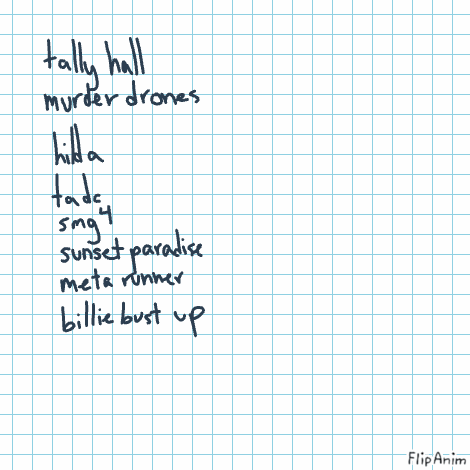 tally hall
murder drones
hilda
tadc
smg4
sunset paradise
meta runner
billie bust up
FlipAnim